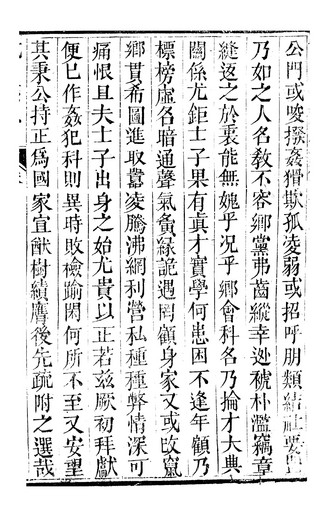 公門或唆撥姦猾欺孤凌弱或招呼朋類結社要盟
乃如之人名教不容鄉黨弗齒縱幸逃褫朴濫竊章
縫返之於衷能無愧乎况乎鄉會科名乃掄才大典
關係尤鉅士子果有眞才實學何患困不逢年顧乃
標榜虛名暗通聲氣夤緣詭遇罔顧身家又或改竄
鄉貫希圖進取囂凌騰沸網利營私種種弊情深可
痛恨且夫士子出身之始尤貴以正若茲厥初拜獻
便已作姦犯科則異時敗檢踰閑何所不至又安望
其秉公持正爲國家宣猷樹績膺後先疏附之選哉